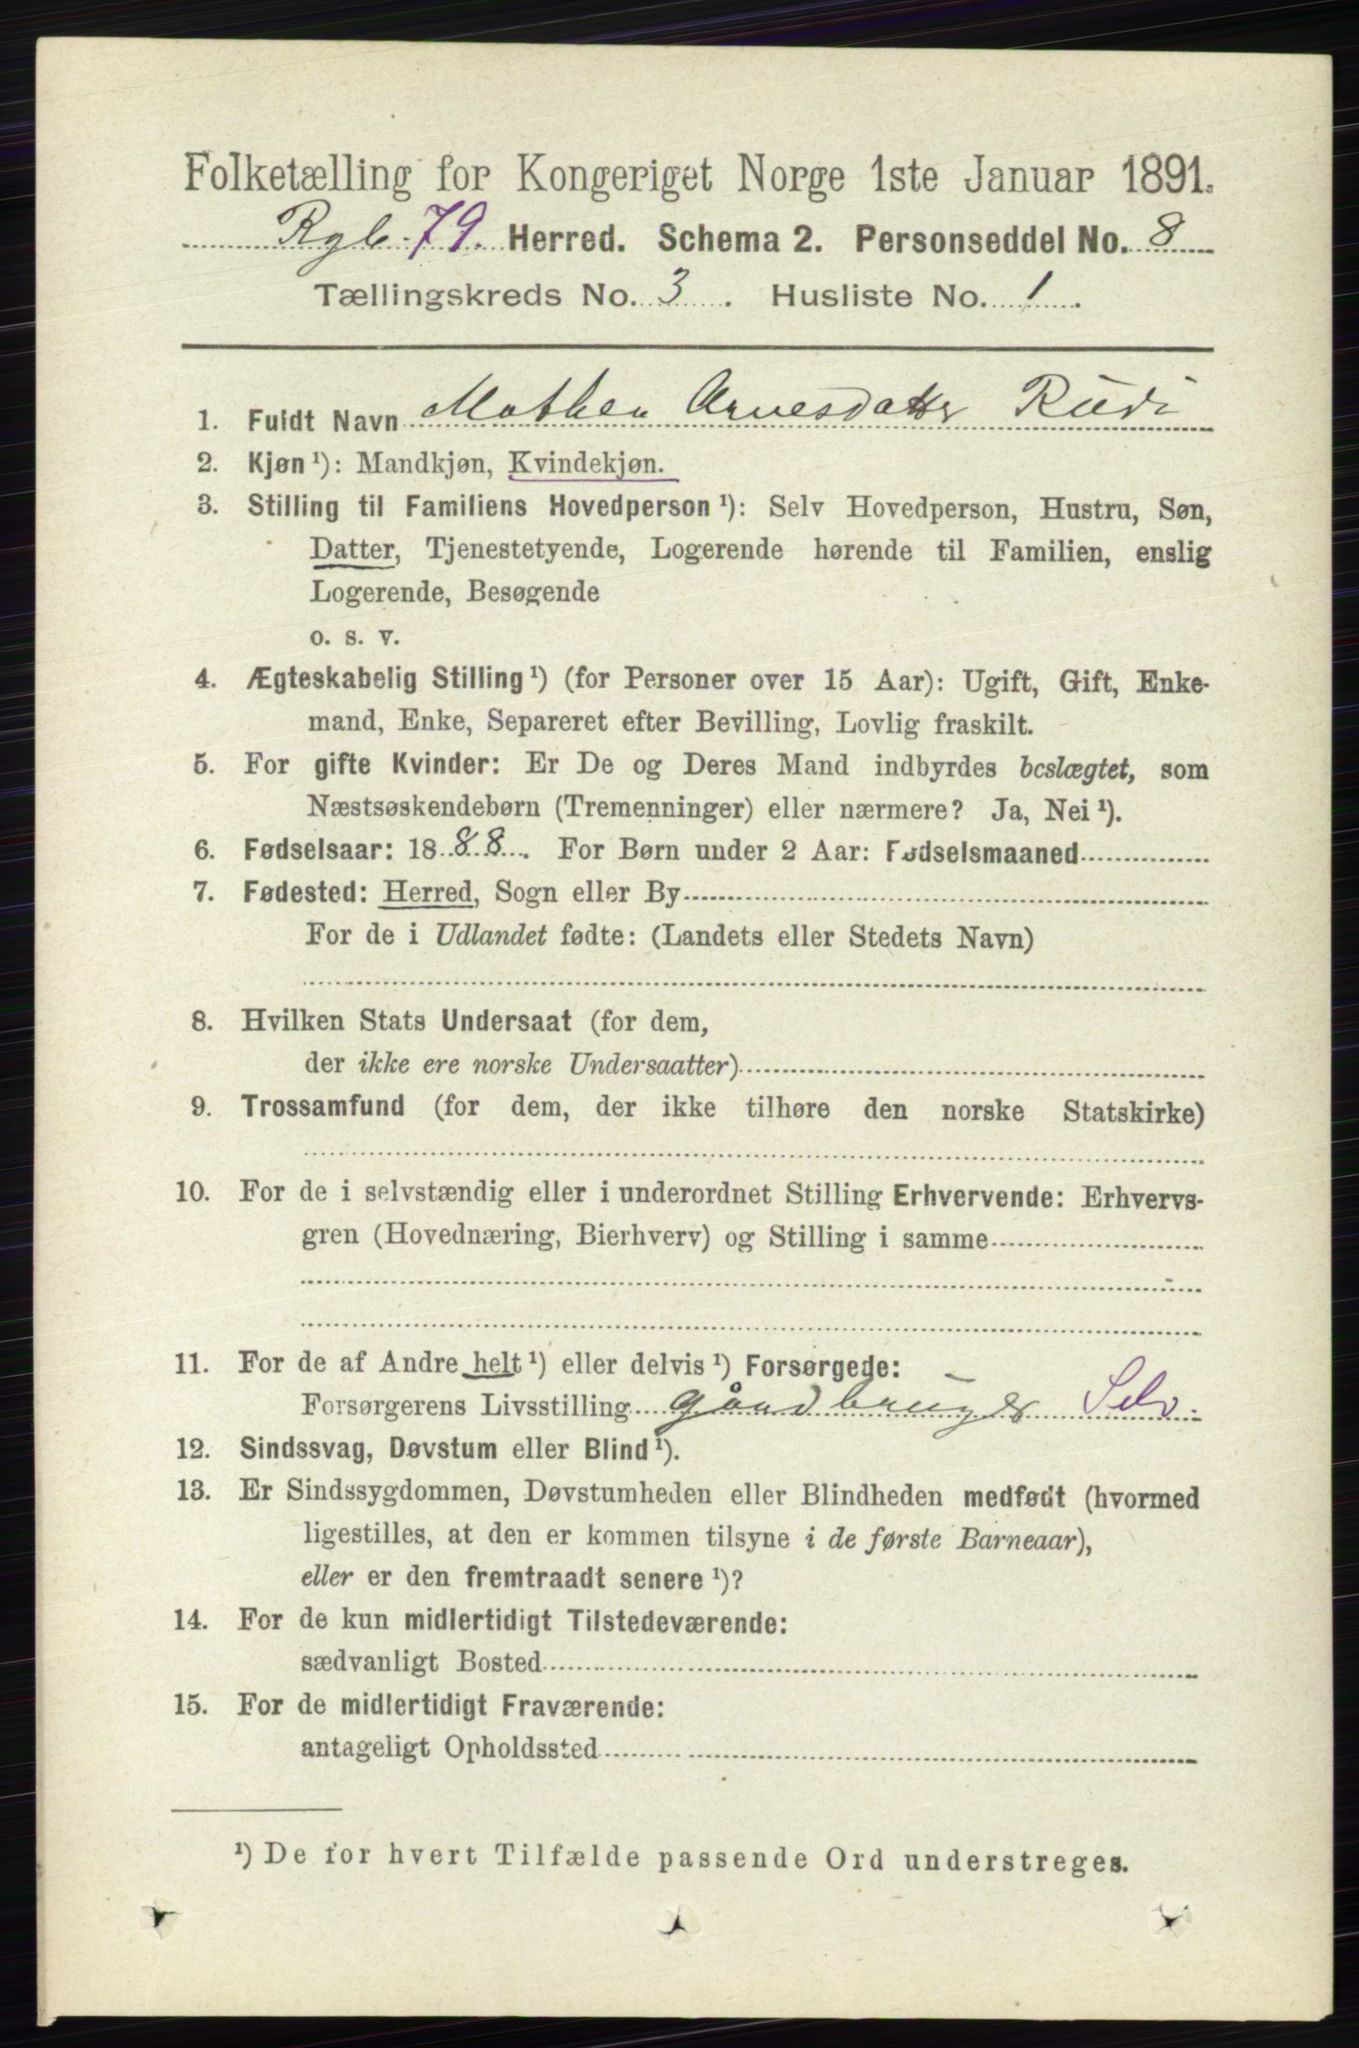 Folketælling for Kongeriget Norge 1ste Januar 1891.
Rgb. 79. Herred. Schema 2. Personseddel No. 8
Tællingskreds No. 3. Husliste No. 1.
1. Fuldt Navn Mathea Arnesdatter Rudi
2. Kjøn¹): Mandkjøn, Kvindekjøn.
3. Stilling til Familiens Hovedperson¹): Selv Hovedperson, Hustru, Søn,
Datter, Tjenestetyende, Logerende hørende til Familien, enslig
Logerende, Besøgende
o. s. v.
4. Ægteskabelig Stilling¹) (for Personer over 15 Aar): Ugift, Gift, Enke-
mand, Enke, Separeret efter Bevilling, Lovlig fraskilt.
5. For gifte Kvinder: Er De og Deres Mand indbyrdes beslægtet, som
Næstsøskendebørn (Tremenninger) eller nærmere? Ja, Nei¹).
6. Fødselsaar: 1888. For Børn under 2 Aar: Fødselsmaaned
7. Fødested: Herred, Sogn eller By
For de i Udlandet fødte: (Landets eller Stedets Navn)
8. Hvilken Stats Undersaat (for dem,
der ikke ere norske Undersaatter)
9. Trossamfund (for dem, der ikke tilhøre den norske Statskirke)
10. For de i selvstændig eller i underordnet Stilling Erhvervende: Erhvervs-
gren (Hovednæring, Bierhverv) og Stilling i samme
11. For de af Andre helt¹) eller delvis¹) Forsørgede:
Forsørgerens Livsstilling gåardbruger Selv.
12. Sindssvag, Døvstum eller Blind¹).
13. Er Sindssygdommen, Døvstumheden eller Blindheden medfødt (hvormed
ligestilles, at den er kommen tilsyne i de første Barneaar),
eller er den fremtraadt senere¹)?
14. For de kun midlertidigt Tilstedeværende:
sædvanligt Bosted
15. For de midlertidigt Fraværende:
antageligt Opholdssted
¹) De for hvert Tilfælde passende Ord understreges.